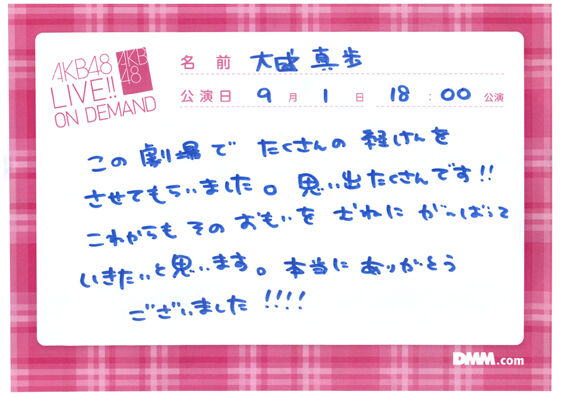 AKB48
LIVE!!
ON DEMAND
AKB
48
名前 大盛真歩
公演日 9月1日 18:00公演
この劇場で たくさんの 経けんを
させてもらいました。思い出たくさんです!!
これからも そのおもいを むねに がんばって
いきたいと思います。本当に ありがとう
ございました!!!!
DMM.com